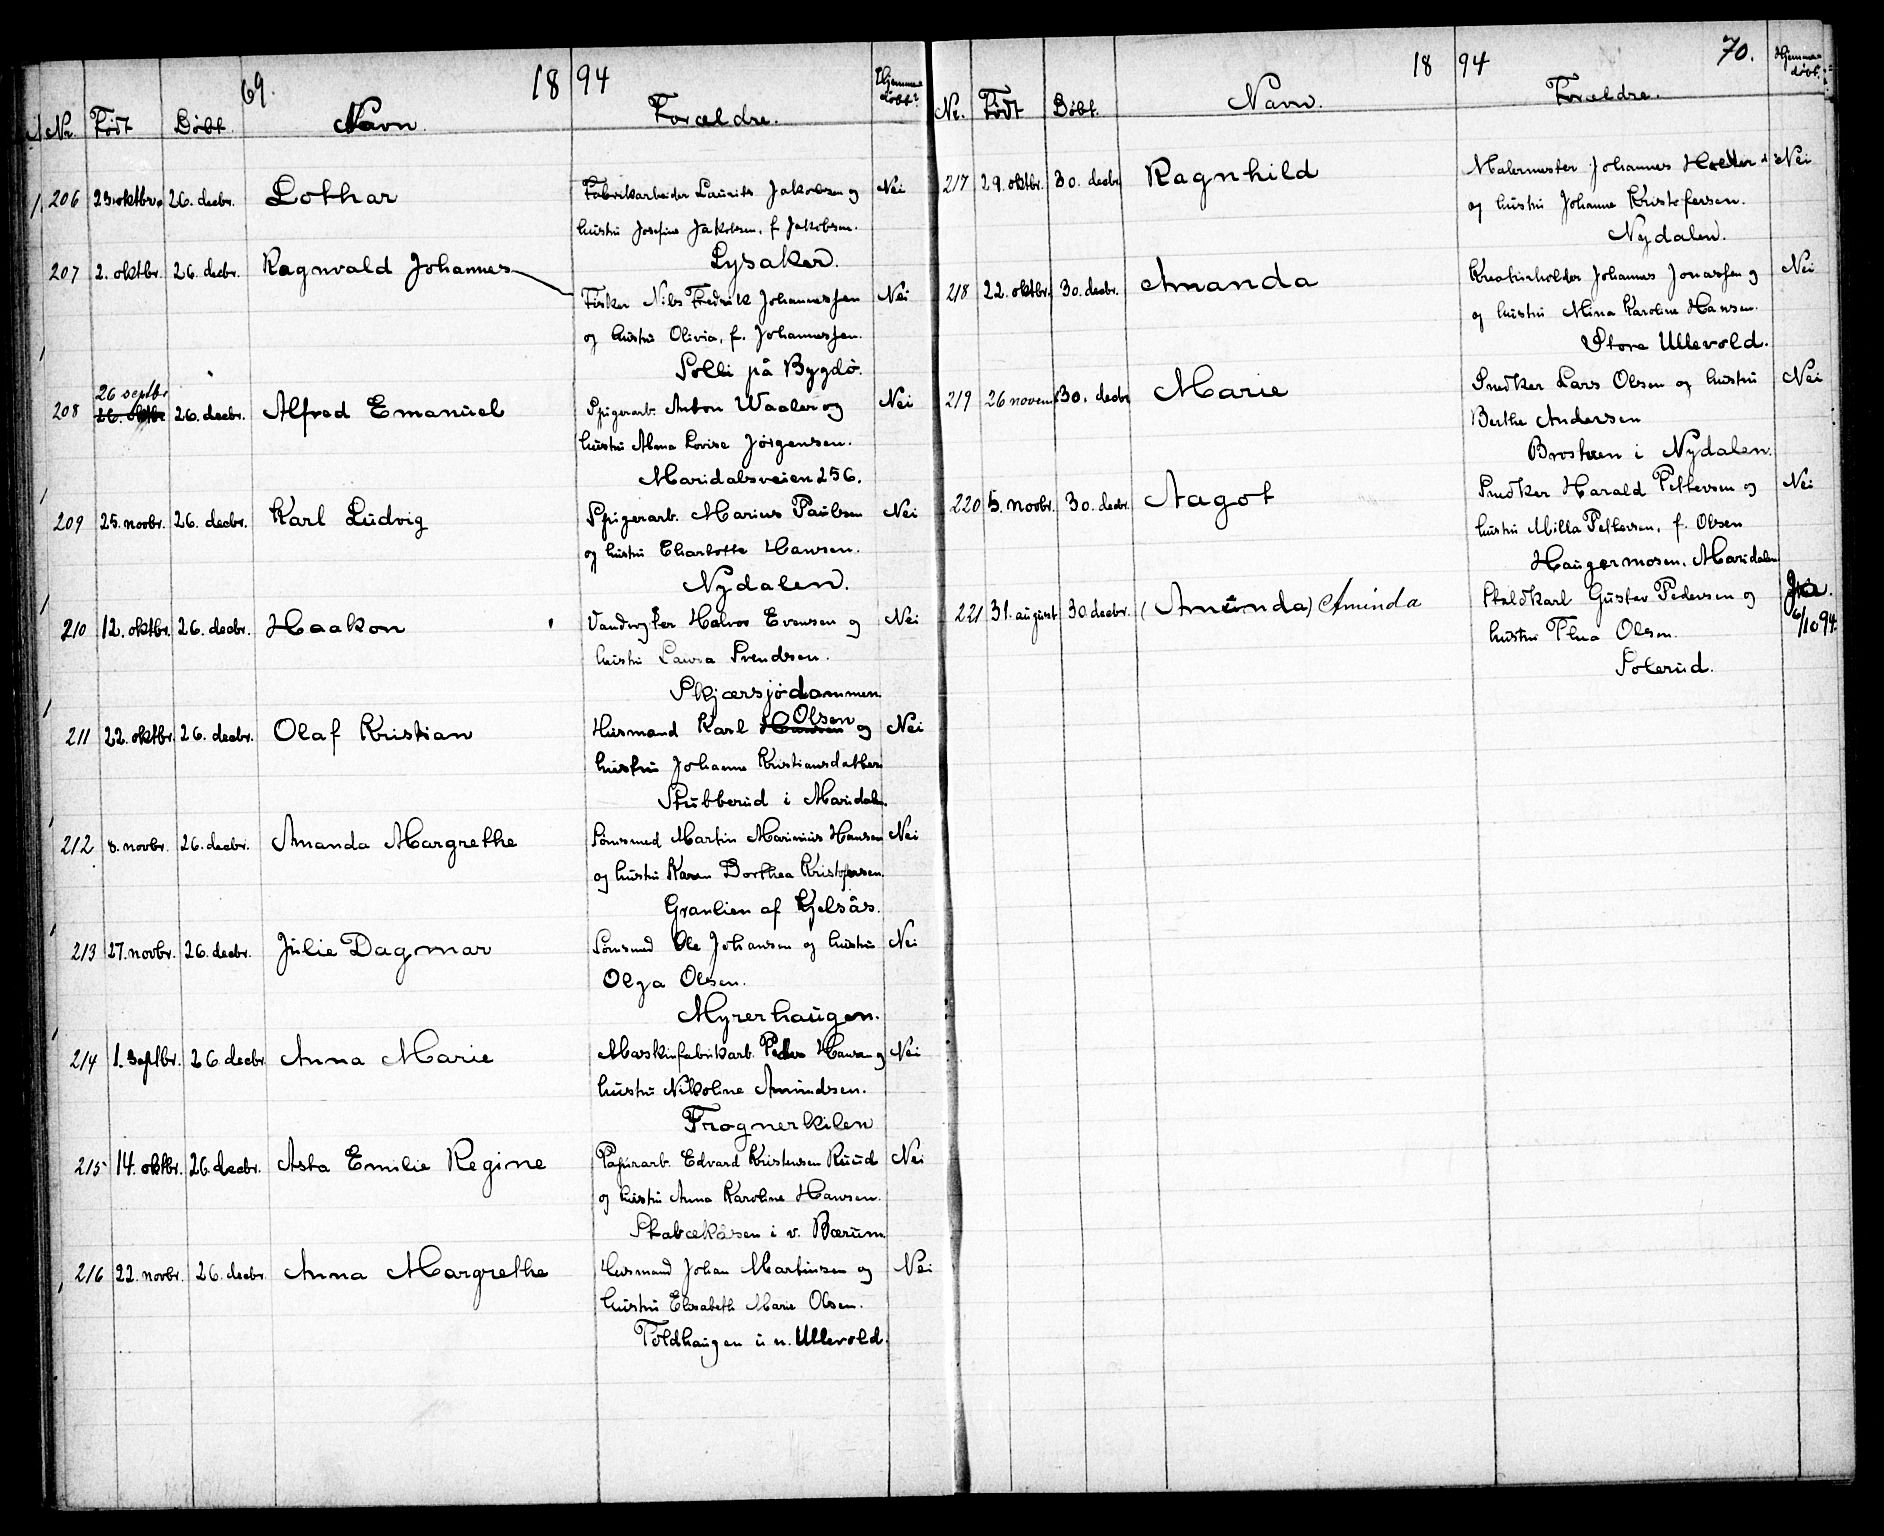 69. 1894
Nr. Født Døbt. Navn. Forældre. Hjemmedøbt?
206 23. oktbr. 26. decbr. Lothar Fabrikarbeider Laurits Jakobsen og Nei
hustru Josefine Jakobsen, f. Jakobsen.
Lysaker.
207 2. oktbr. 26. decbr. Ragnvald Johannes
Fisker Nils Fredrik Johannessen Nei
og hustru Olivia, f. Johannessen.
Solli på Bygdø.
26 septbr
208 26. oktbr 26. decbr. Alfred Emanuel Spigerarb. Anton Waaler og Nei
hustru Alma Lovise Jørgensen.
Maridalsveien 256.
209 25. novbr. 26. decbr. Karl Ludvig Spigerarb. Marius Paulsen Nei
og hustru Charlotte Hansen.
Nydalen.
210 12. oktbr. 26. decbr. Haakon Vandvogter Halvor Evensen og Nei
hustru Laura Svendsen.
Skjærsjødammen.
Olsen
211 22. oktbr. 26. decbr. Olaf Kristian Husmand Karl Hansen og Nei
hustru Johanne Kristiansdatter.
Stubberud i Maridalen.
212 8. novbr. 26. decbr. Amanda Margrethe Sømsmed Martin Marinius Hansen Nei
og hustru Karen Dorthea Kristofersen.
Granlien af Kjelsås.
213 27. novbr. 26. decbr. Julie Dagmar Sømsmed Ole Johansen og hustru Nei
Olga Olsen.
Myrerhaugen.
214 1. septbr. 26 decbr Anna Marie Maskinfabrikarb. Peder Hansen og Nei
hustru Nikoline Amundsen.
Frognerkilen
215 14. oktbr. 26. decbr. Asta Emilie Regine Papirarb. Edvard Kristensen Ruud Nei
og hustru Anna Karoline Hansen.
Stabækåsen i v. Bærum.
216 22. novbr. 26. decbr. Anna Margrethe Husmand Johan Martinsen og Nei
hustru Elisabeth Marie Olsen.
Toldhaugen u. n. Ullevold.
1894 70.
Nr. Født Døbt. Navn. Forældre. Hjemmedøbt?
217 29. oktbr. 30. decbr. Ragnhild Malermester Johannes Nei
og hustru Johanne Kristofersen.
Nydalen.
218 22. oktbr. 30. decbr. Amanda Kreaturholder Johannes Jonassen og Nei
og hustru Mina Karoline Hansen.
Store Ullevold.
219 26 novem 30. decbr Marie Snedker Lars Olsen og hustru Nei
Berthe Andersen
Brostuen i Nydalen.
220 5. novbr. 30. decbr. Aagot Snedker Harald Pettersen og Nei
hustru Milla Pettersen, f. Olsen
Haugermosen, Maridalen
221 31. august 30 decbr. (Amunda) Aminda Staldkarl Gustav Pedersen og Ja.
hustru Thea Olsen. 6/10 94.
Solerud.